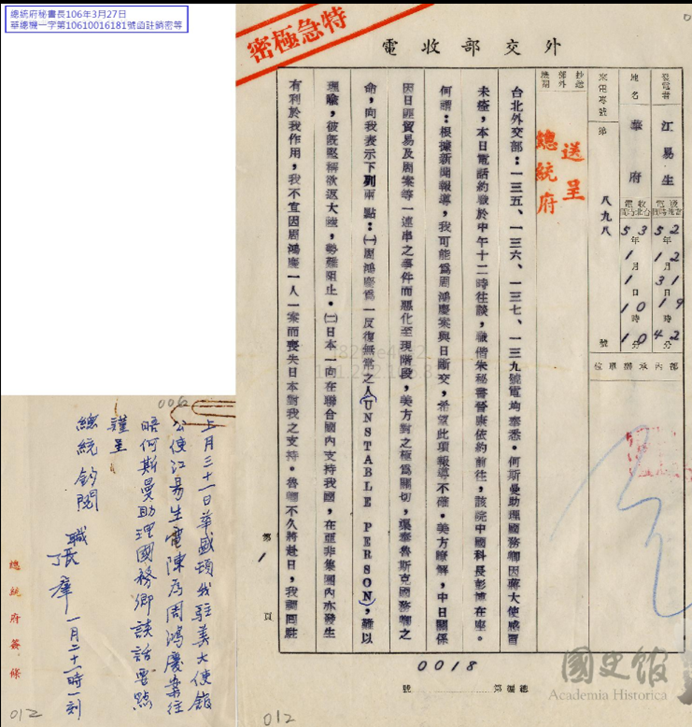 總統府秘書長106年3月27日
華總機一字第10610016181號函註銷密等
特急極密
外交部收電
抄送
部外
機關
送呈
總統府
來電專號
第八九八號
地名
華府
發電者
江易生
52年12月31日19時42分
53年1月1日10時10分
部內承辦單位
台北外交部：一三五、一三六、一三七、一三九號電均奉悉。何斯曼助理國務卿因蔣大使感冒
未痊，本日電話約職於中午十二時往談，職偕朱秘書晉康依約前往，該院中國科長彭博在座。
何謂：根據新聞報導，我可能爲周鴻慶案與日斷交，希望此項報導不確。美方瞭解，中日關係
因日匪貿易及周案等一連串之事件而惡化至現階段，美方對之極爲關切，渠奉魯斯克國務卿之
命，向我表示下列兩點：㈠周鴻慶爲一反復無常之人(UNSTABLE PERSON)，難以
理喻，彼既堅稱欲返大陸，勢難阻止。㈡日本一向在聯合國內支持我國，在亞非集團內亦發生
有利於我作用，我不宜因周鴻慶一人一案而喪失日本對我之支持。魯卿不久將赴日，我
第1頁
0018
總編第號
國史館
Academia Historica
012
0062
上月三十一日華盛頓我駐美大使館
公使江易生電陳爲周鴻慶案往
晤何斯曼助理國務卿談話要點
謹呈
總統鈞閱
職張羣一月二十一時一刻
總統府簽條
012